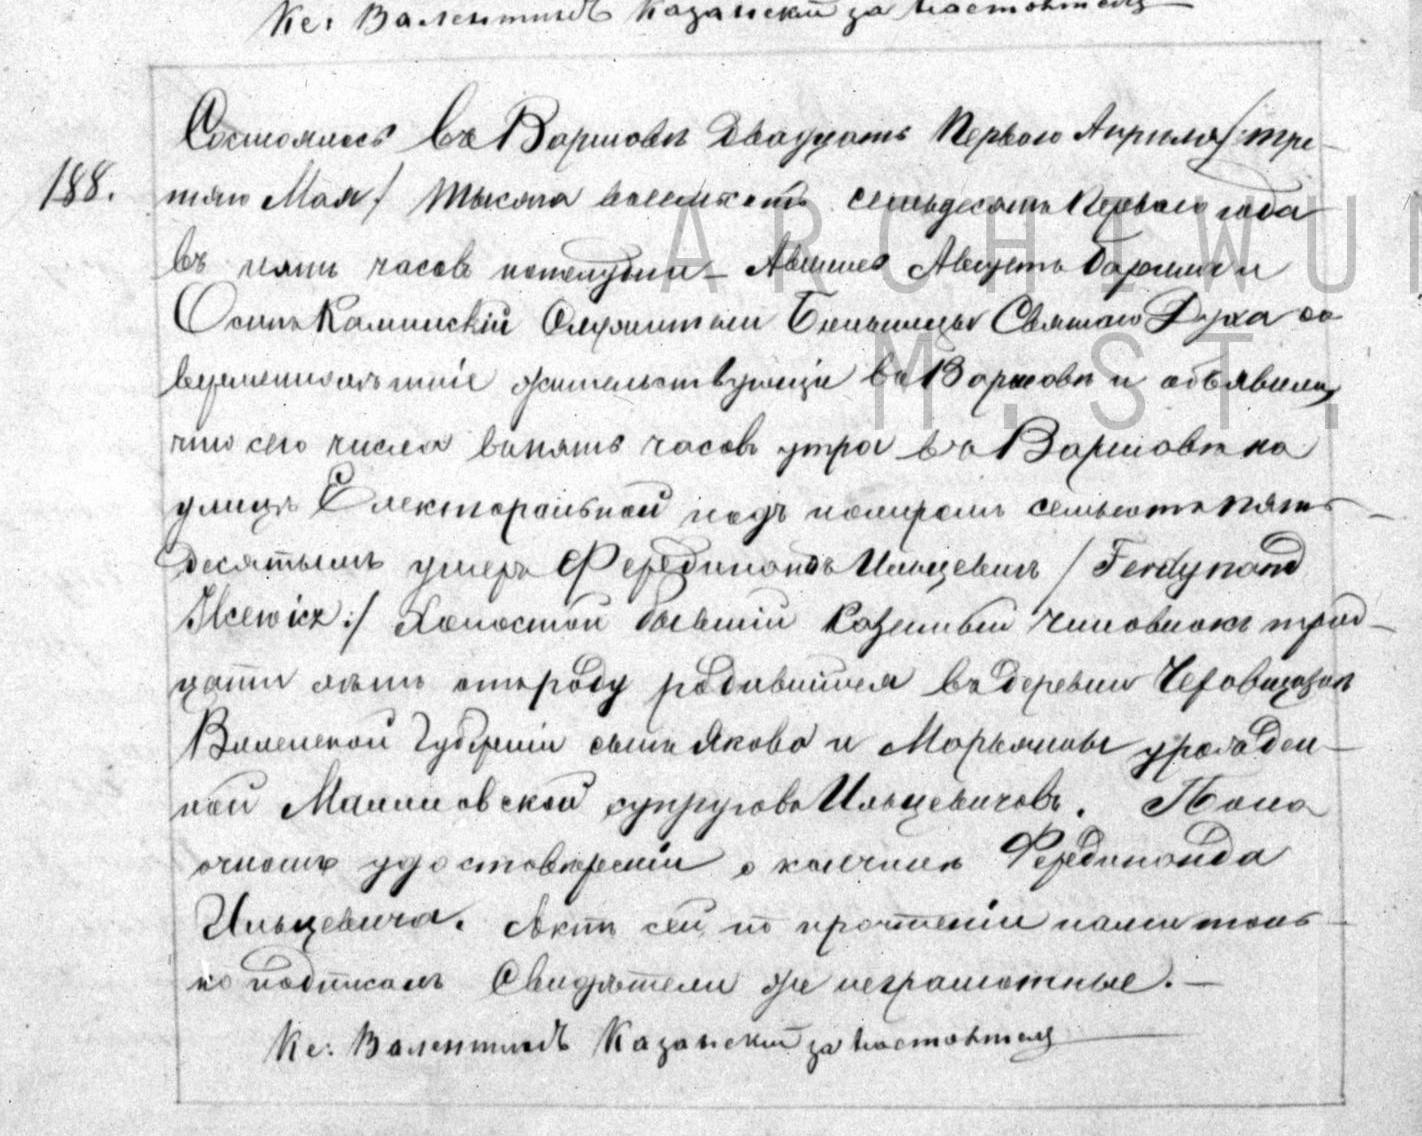 Кс: Валентинъ Казанскій за настоятеля
188.
Состоялось въ Варшавѣ двадцать перваго Апрѣля /:тре-
тяго Мая/ тысяча восемьсотъ семьдесятъ перваго года
въ пять часовъ пополудни – Явились Августъ и
Осипъ Каминскій Больницы Святаго Духа со-
вершеннолѣтніе жительствующіе въ Варшавѣ и объявили,
что сего числа въ пять часовъ утра въ Варшавѣ на
улицѣ Електоральной подъ номеромъ семьсотъ пять-
десятымъ умеръ Фердинандъ Ильцевичъ /Ferdynand
Ilcewicz:/ Холостой бывшій Казенный Чиновникъ трид-
цати лѣтъ отъ роду родившійся въ деревни
Виленской Губерніи сынъ Якова и Марьянны урожден-
ной Малиновской супруговъ Ильцевичовъ. Пона
очномъ удостовѣреніи о кончинѣ Фердинанда
Ильцевича. Актъ сей по прочтеніи нами толь-
ко подписанъ Свидѣтели же неграмотные. –
Кс: Валентинъ Казанскій за настоятеля
ARCHIWU
M.ST.